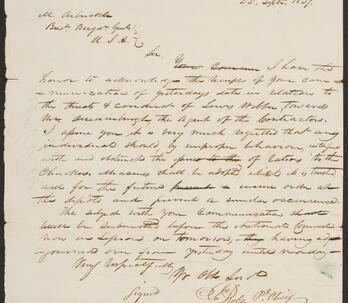 22. Sept. 1837.
M. Arbuckle
Bvt. Brigr Genl
U.S.A.
Sir, I have the
honor to acknowledge the receipt of your com-
-munication of yesterdays date in relation to
the threats & conduct of Lewis towards
Mr. the Agent of the Contractors.
I assure you it is very much regretted that any
individual should, by improper behaviour, interfere
with and obstruct the of rations to the
Measures shall be adopted which it is trusted
will for the future insure order at
the depots and prevent a similar occurrence.
The subject with your Communication
will be submitted before the National Council
now in Session on tomorrow, having
journeyed over from yesterday until Monday
Very Respectfully
Yr Obt Servt
Signed